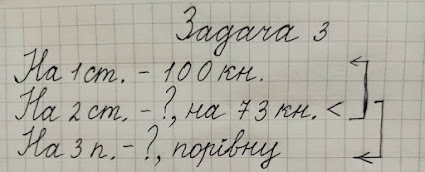 Задача 3
На 1 ст. - 100 кн.
На 2 ст. - ?, на 73 кн. <
На 3 п. - ?, порівну